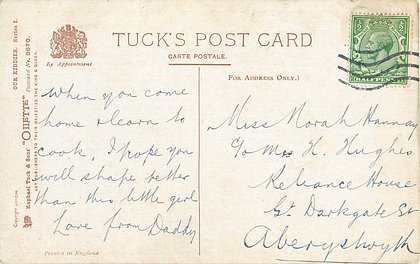 TUCK'S POST CARD
CARTE POSTALE.
By Appointment
FOR ADDRESS ONLY.)
HALFPENNY
Copyright
Raphael Tuck & Sons' "OILETTE"
OUR KIDDIES. Series I.
Postcard No. 8670.
ART PUBLISHERS TO THEIR MAJESTIES THE KING & QUEEN
When you come
home & learn to
cook, I hope you
will shape better
than this little girl
Love from Daddy
Printed in England
Miss Norah Hannay
c/o Mrs H. Hughes
Reliance House
Gt Darkgate St
Aberystwyth